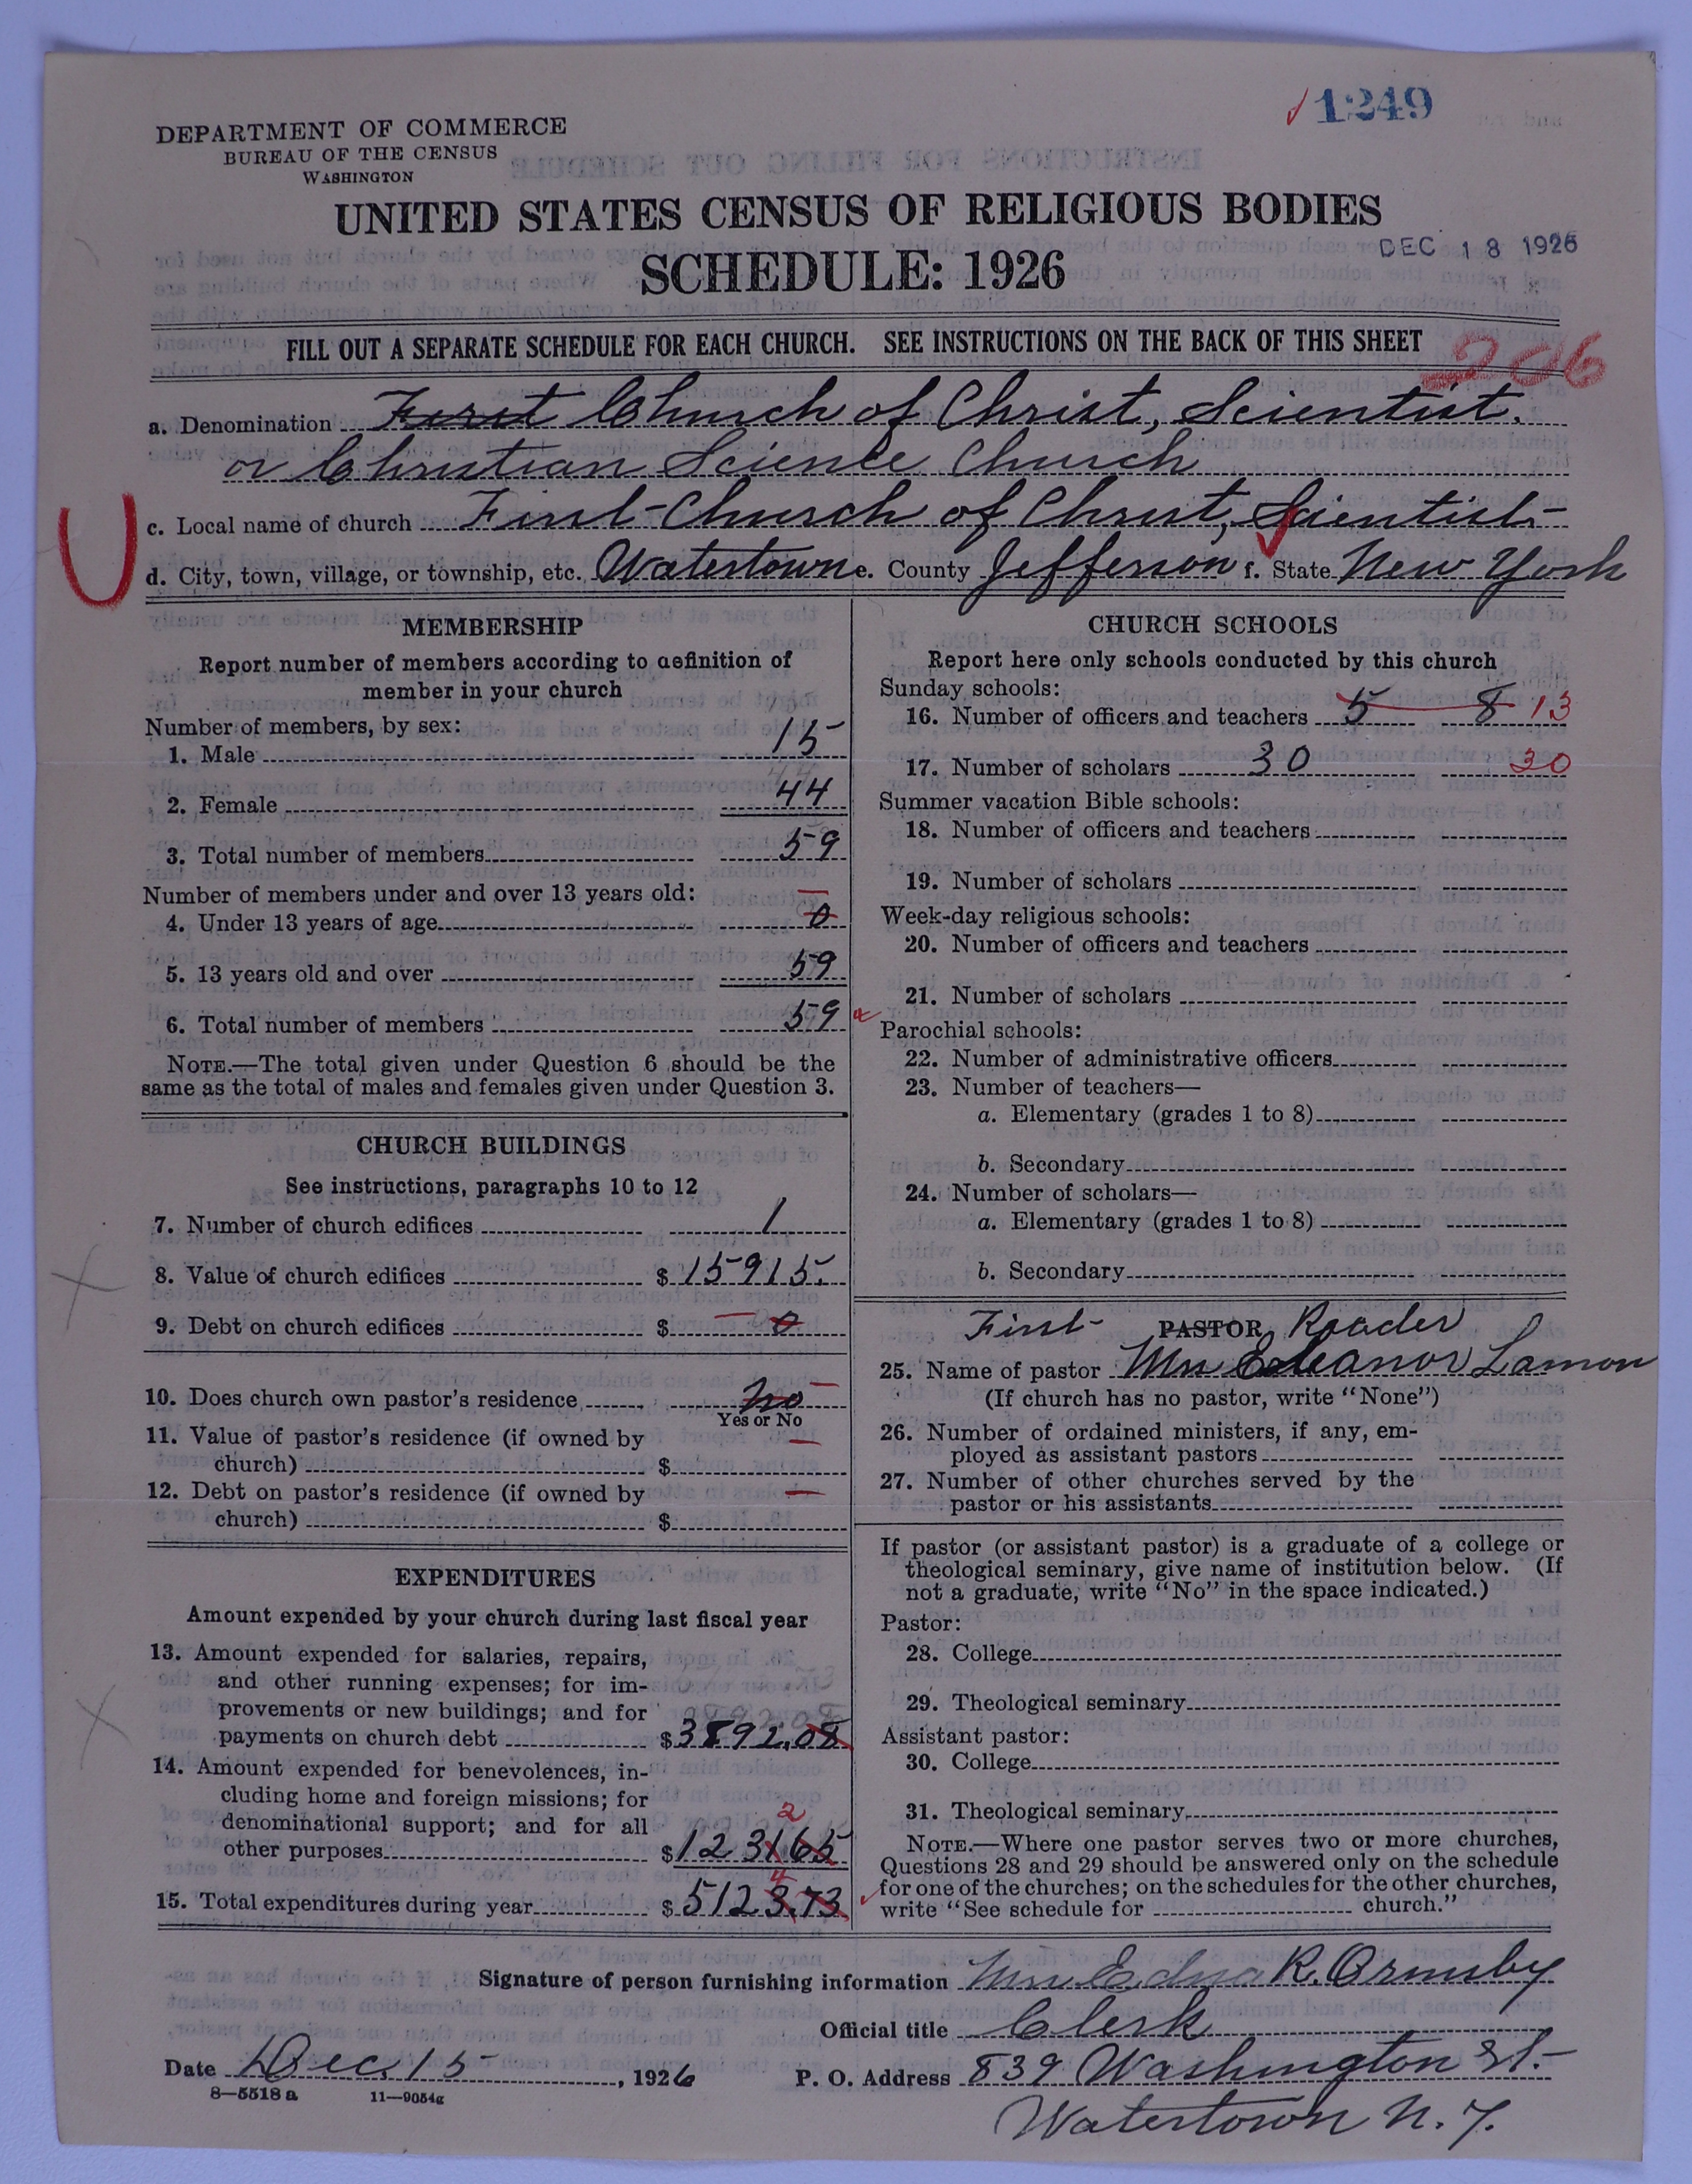 1249
DEPARTMENT OF COMMERCE
BUREAU OF THE CENSUS
WASHINGTON
UNITED STATES CENSUS OF RELIGIOUS BODIES
DEC 18 1926
SCHEDULE: 1926
FILL OUT A SEPARATE SCHEDULE FOR EACH CHURCH. SEE INSTRUCTIONS ON THE BACK OF THIS SHEET
206
a. Denomination First Church of Christ, Scientist.
or Christian Science Church
c. Local name of church First Church of Christ, Scientist
d. City, town, village, or township, etc. Watertown e. County Jefferson f. State New York
MEMBERSHIP
Report number of members according to definition of
member in your church
Number of members, by sex:
1. Male 15
2. Female 44
3. Total number of members 59
Number of members under and over 13 years old:
4. Under 13 years of age 0
5. 13 years old and over 59
6. Total number of members 59
NOTE.—The total given under Question 6 should be the
same as the total of males and females given under Question 3.
CHURCH BUILDINGS
See instructions, paragraphs 10 to 12
7. Number of church edifices 1
8. Value of church edifices $ 15915.
9. Debt on church edifices $ 0
10. Does church own pastor's residence No
Yes or No
11. Value of pastor's residence (if owned by
church) $
12. Debt on pastor's residence (if owned by
church) $
EXPENDITURES
Amount expended by your church during last fiscal year
13. Amount expended for salaries, repairs,
and other running expenses; for im-
provements or new buildings; and for
payments on church debt $ 3892.08
14. Amount expended for benevolences, in-
cluding home and foreign missions; for
denominational support; and for all
2
other purposes $ 123165
4
15. Total expenditures during year $ 5123.73
CHURCH SCHOOLS
Report here only schools conducted by this church
Sunday schools:
16. Number of officers and teachers 5 8 13
17. Number of scholars 30 30
Summer vacation Bible schools:
18. Number of officers and teachers
19. Number of scholars
Week-day religious schools:
20. Number of officers and teachers
21. Number of scholars
Parochial schools:
22. Number of administrative officers
23. Number of teachers—
a. Elementary (grades 1 to 8)
b. Secondary
24. Number of scholars—
a. Elementary (grades 1 to 8)
b. Secondary
First PASTOR Reader
25. Name of pastor Mrs Eleanor Lamon
(If church has no pastor, write "None")
26. Number of ordained ministers, if any, em-
ployed as assistant pastors
27. Number of other churches served by the
pastor or his assistants
If pastor (or assistant pastor) is a graduate of a college or
theological seminary, give name of institution below. (If
not a graduate, write "No" in the space indicated.)
Pastor:
28. College
29. Theological seminary
Assistant pastor:
30. College
31. Theological seminary
NOTE.—Where one pastor serves two or more churches,
Questions 28 and 29 should be answered only on the schedule
for one of the churches; on the schedules for the other churches,
write "See schedule for church."
Signature of person furnishing information Mrs Edna R. Ormsby
Official title Clerk
Date Dec. 15, 1926
P. O. Address 839 Washington St.
8—5518 a 11—9054g
Watertown N.Y.